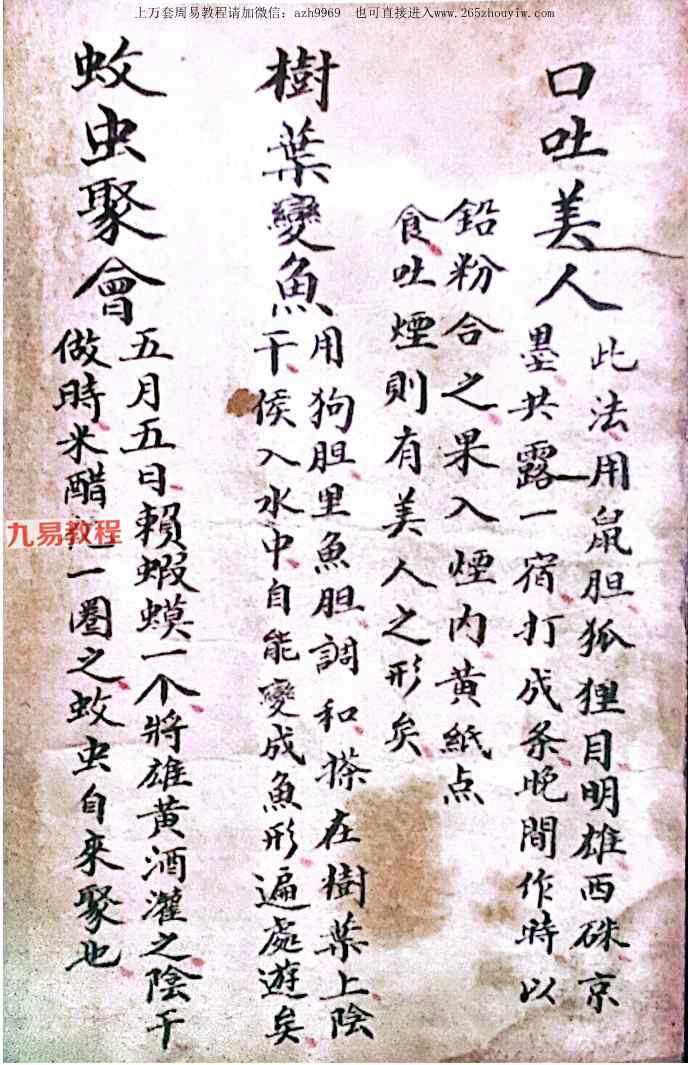 上万套周易教程请加微信：azh9969　也可直接进入www.265zhouyiw.com
口吐美人
此法用鼠胆狐狸目明雄西硃京
墨共露一宿打成条晚間作時以
鉛粉合之果入煙内黄紙点
食吐煙則有美人之形矣
樹葉變魚
用狗胆里魚胆調和搽在樹葉上陰
干侯入水中自能變成魚形遍處遊矣
蚊虫聚會
五月五日賴蝦蟆一个將雄黄酒灌之陰干
做時米醋 一圈之蚊虫自来聚也
九易教程